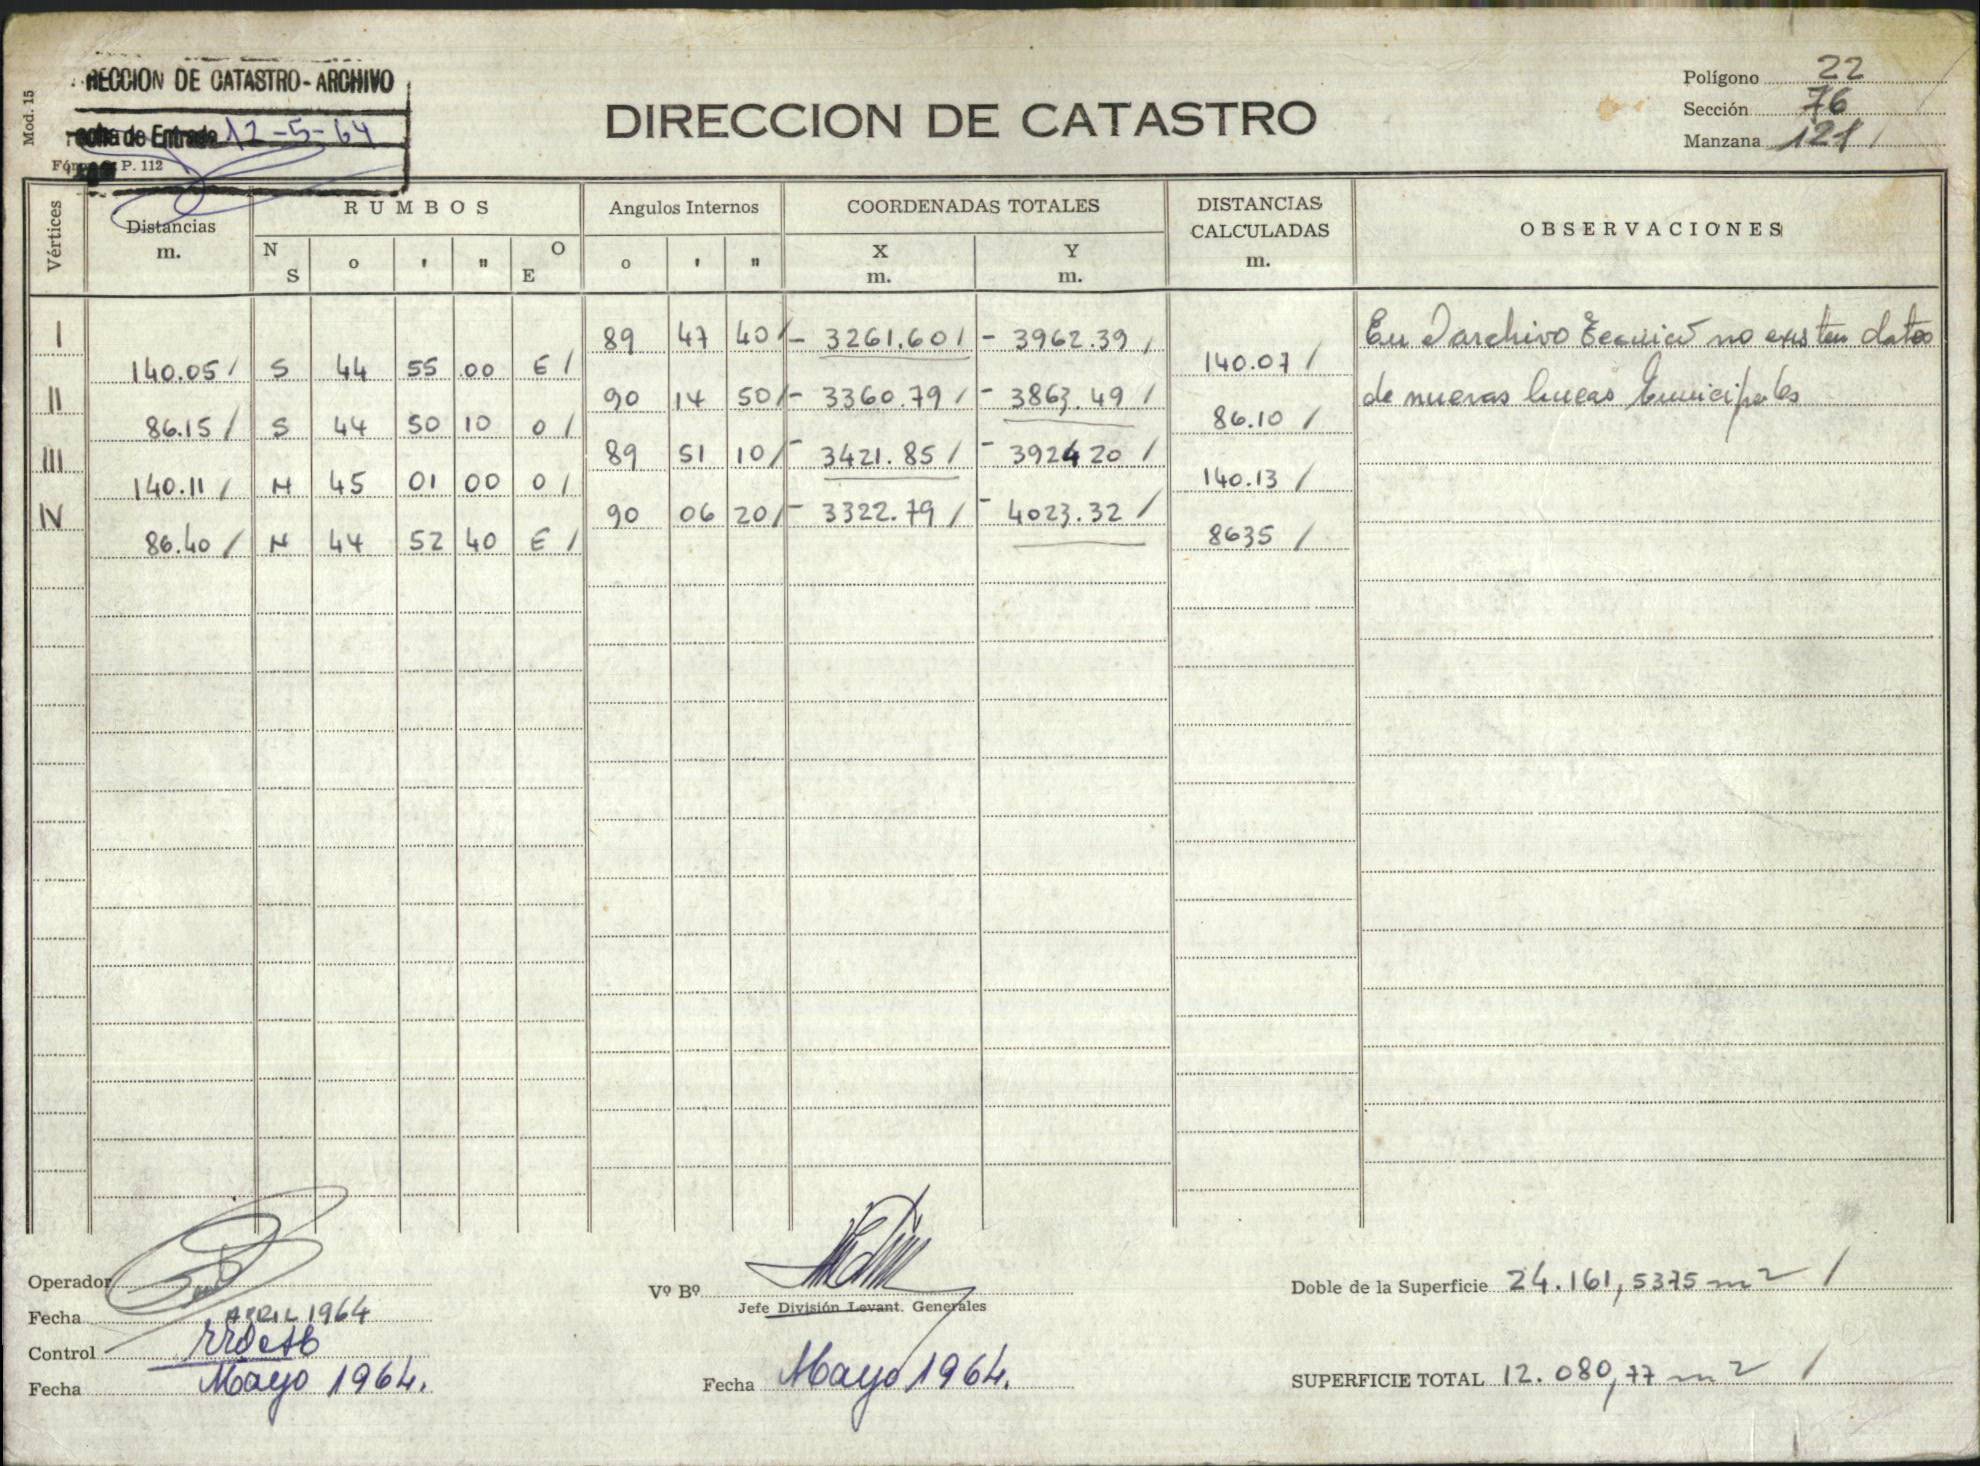 RECCION DE CATASTRO - ARCHIVO
Fecha de Entrada 12-5-64
Mod. 15
P. 112
DIRECCION DE CATASTRO
Polígono 22
Sección 76
Manzana 121
Vértices Distancias m. RUMBOS N S o ' " O E Angulos Internos o ' " COORDENADAS TOTALES X m. Y m. DISTANCIAS CALCULADAS m. OBSERVACIONES
I 89 47 40 - 3261.60 - 3962.39 En archivo no existen datos
140.05 S 44 55 00 E 140.07
II 90 14 50 - 3360.79 - 3863.49 de nuevas lineas Municipales
86.15 S 44 50 10 O 86.10
III 89 51 10 - 3421.85 - 3924 20
140.11 N 45 01 00 O 140.13
IV 90 06 20 - 3322.79 - 4023.32
86.40 N 44 52 40 E 8635
Operador
Fecha ABRIL 1964
Control
Fecha Mayo 1964.
Vº Bº
Jefe División Levant. Generales
Fecha Mayo 1964.
Doble de la Superficie 24.161,5375 m2
SUPERFICIE TOTAL 12.080,77 m2